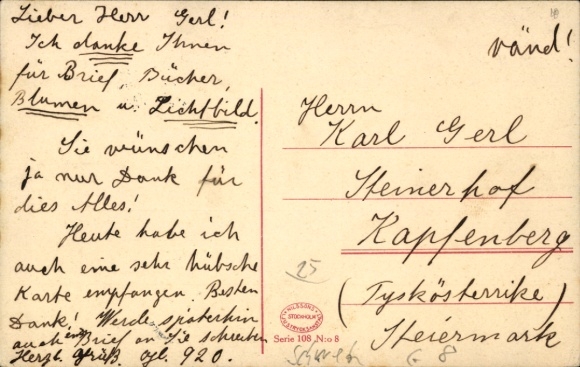 Lieber Herr Gerl!
Ich danke Ihnen
für Brief, Bücher,
Blumen u. Lichtbild.
Sie wünschen
ja nur Dank für
dies Alles!
Heute habe ich
auch eine sehr hübsche
Karte empfangen. Besten
Dank! Werde späterhin
auch ein Brief an Sie schreiben
Herzl. Grüß. 920.
vänd!
Herrn
Karl Gerl
Steinerhof
Kapfenberg
(Tyskösterrike)
Steiermark
25
STOCKHOLM
Serie 108 N:o 8